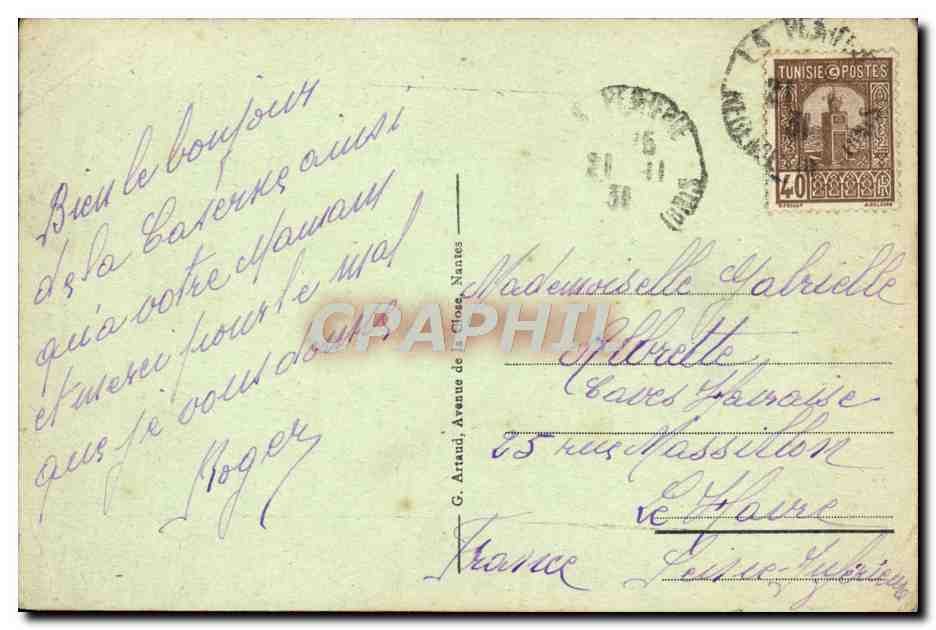 Bien le bonjour
de la Caserne ainsi
qu'a votre Maman
et merci pour le mal
que je vous donne
Roger
G. Artaud, Avenue de la Close, Nantes
TUNISIE POSTES
40
21 11
Mademoiselle Gabrielle
Albrette
Caves Havraise
25 rue Massillon
Le Havre
Seine-Inférieure
France
CPAPHIL